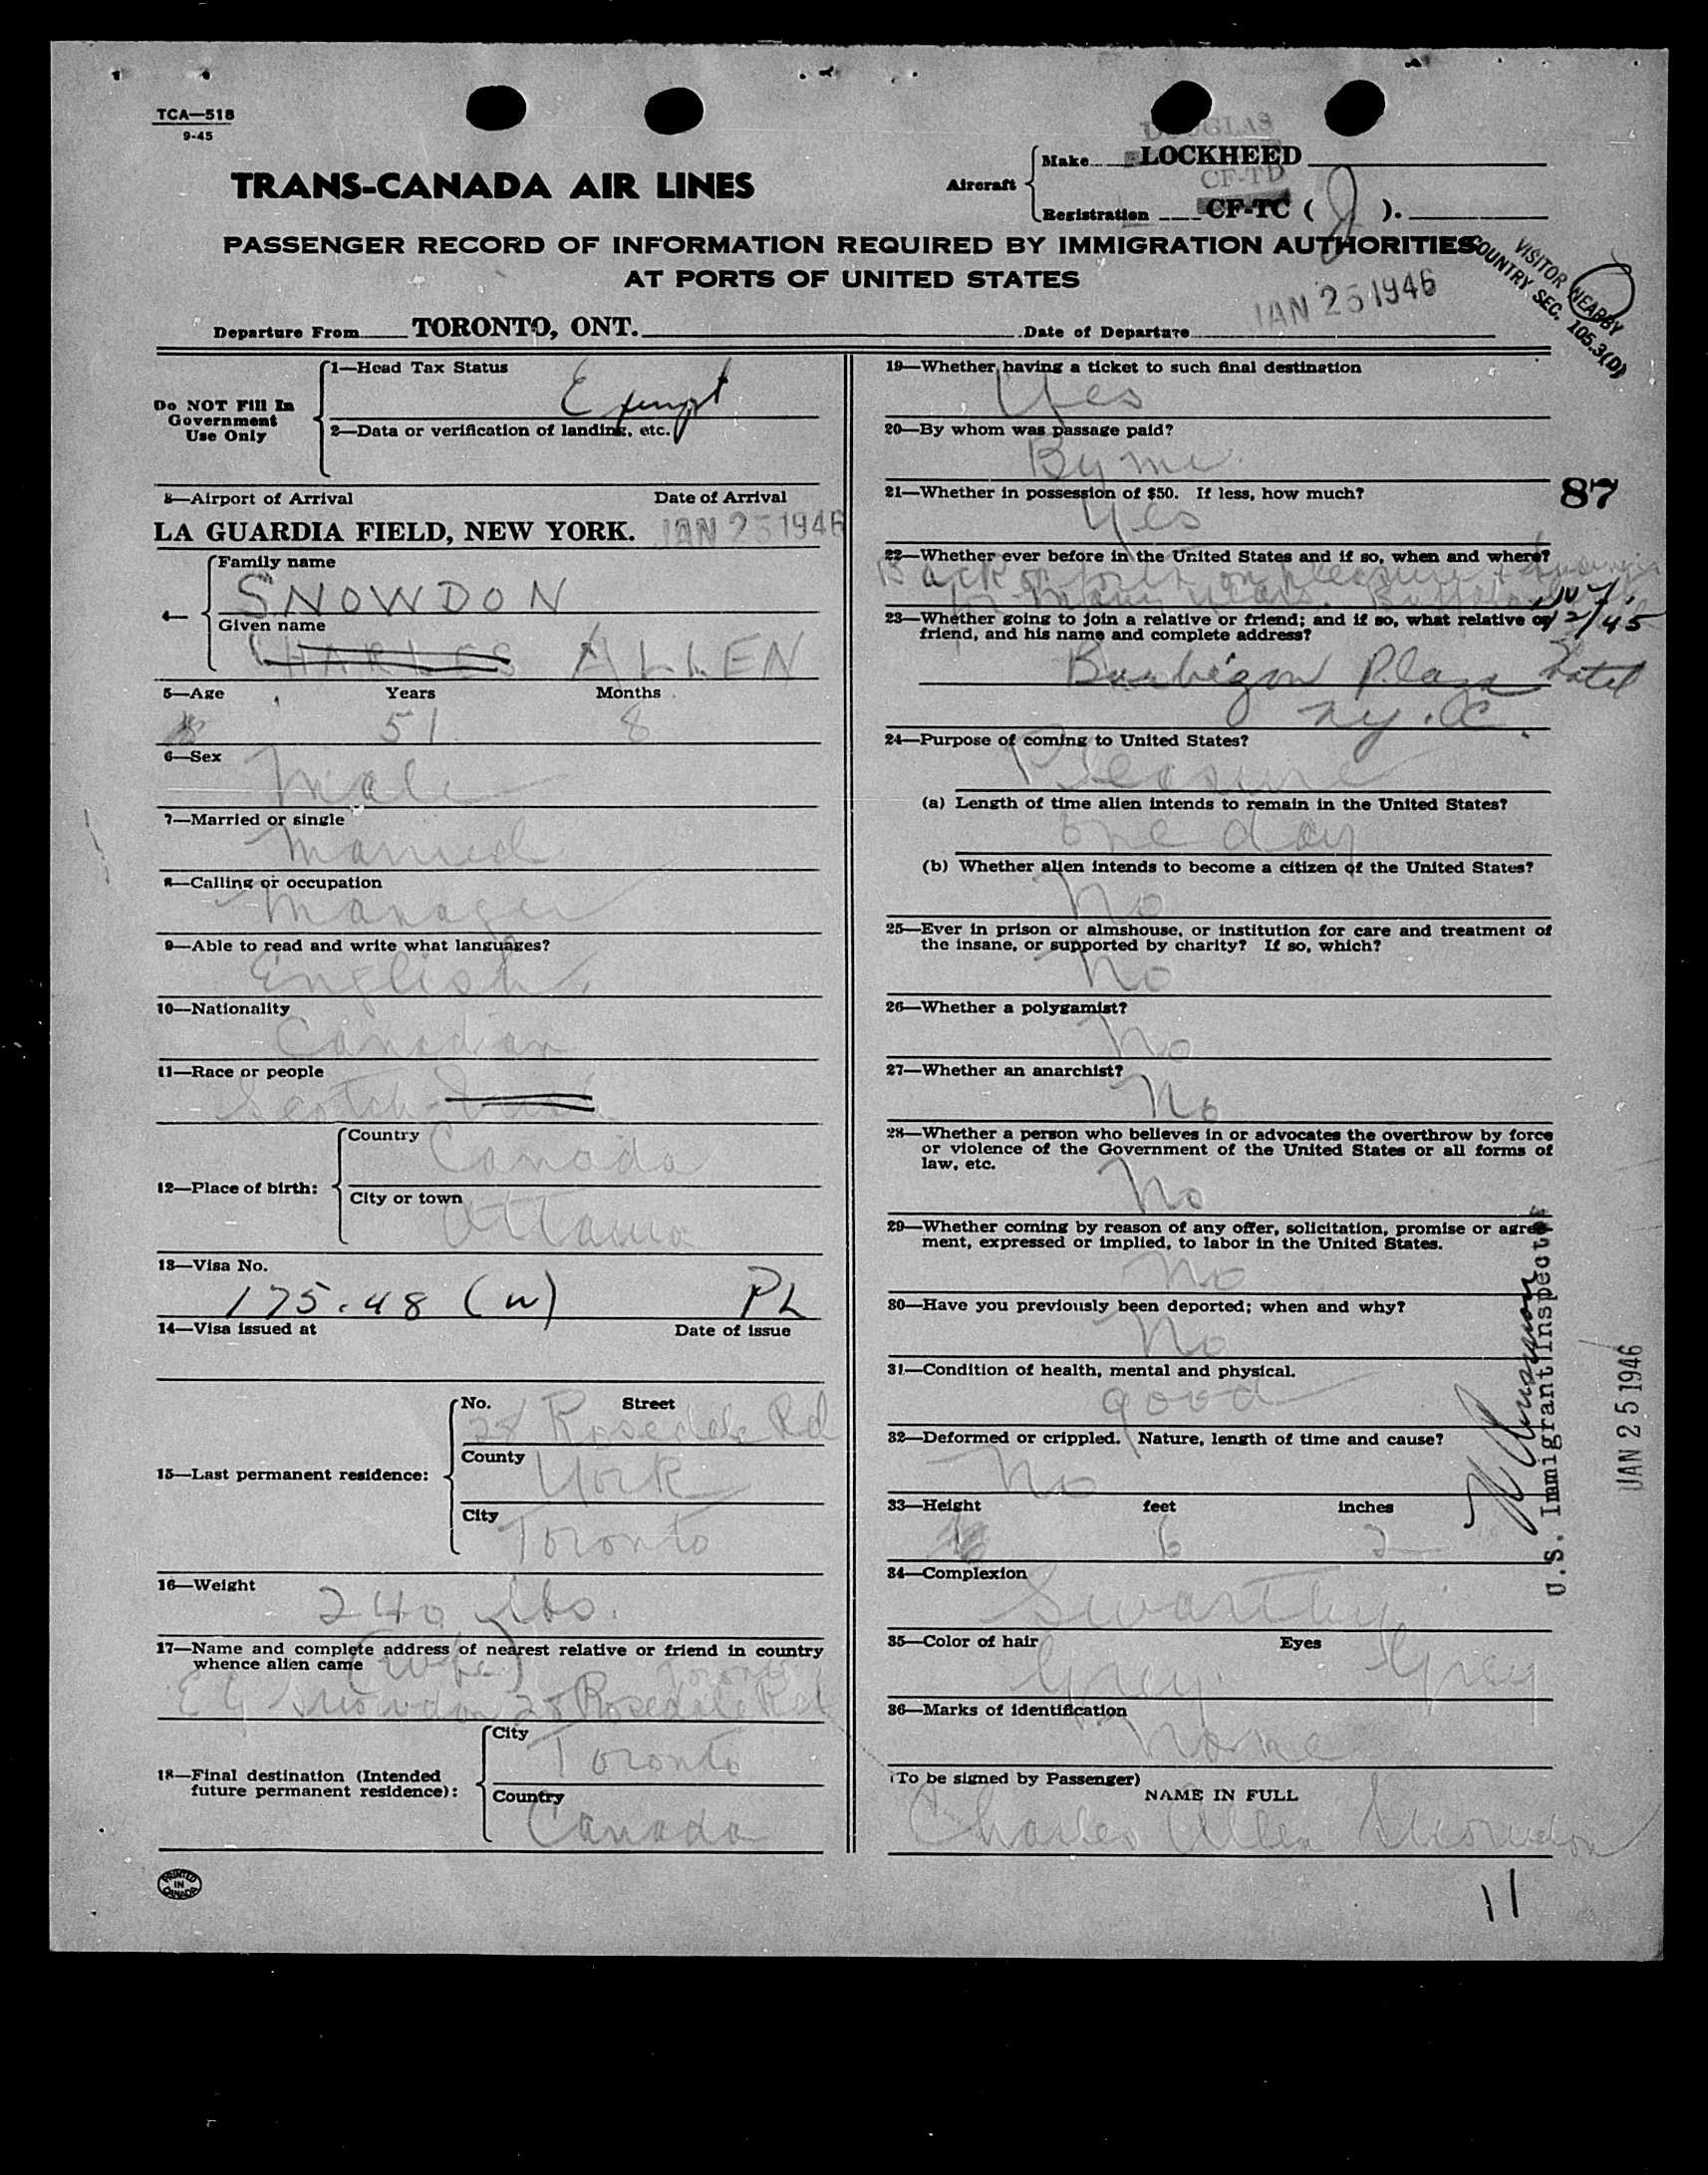 TCA—518
9-45
DOUGLAS
Aircraft Make LOCKHEED
CF-TD
Registration CF-TC ( J ).
TRANS-CANADA AIR LINES
PASSENGER RECORD OF INFORMATION REQUIRED BY IMMIGRATION AUTHORITIES
AT PORTS OF UNITED STATES
VISITOR NEARBY
COUNTRY SEC. 105.3(D)
Departure From TORONTO, ONT. Date of Departure JAN 25 1946
Do NOT Fill In
Government
Use Only
1—Head Tax Status
Exempt
2—Data or verification of landing, etc.
3—Airport of Arrival Date of Arrival
LA GUARDIA FIELD, NEW YORK. JAN 25 1946
4— Family name
SNOWDON
Given name
CHARLES ALLEN
5—Age Years Months
51 8
6—Sex
Male
7—Married or single
Married
8—Calling or occupation
Manager
9—Able to read and write what languages?
English
10—Nationality
Canadian
11—Race or people
Scotch
12—Place of birth:
Country
Canada
City or town
Ottawa
13—Visa No.
175.48 (W) PL
14—Visa issued at Date of issue
15—Last permanent residence:
No. Street
28 Rosedale Rd
County
York
City
Toronto
16—Weight
240 lbs.
17—Name and complete address of nearest relative or friend in country
whence alien came
(Wife) Toronto
E G Snowdon 28 Rosedale Rd
18—Final destination (Intended
future permanent residence):
City
Toronto
Country
Canada
PRINTED
IN
CANADA
19—Whether having a ticket to such final destination
Yes
20—By whom was passage paid?
By me.
21—Whether in possession of $50. If less, how much?
Yes
87
22—Whether ever before in the United States and if so, when and where?
Back & forth on pleasure & business
for many years. Buffalo
12/45
23—Whether going to join a relative or friend; and if so, what relative or
friend, and his name and complete address?
Barbizon Plaza Hotel
N.Y.C.
24—Purpose of coming to United States?
Pleasure
(a) Length of time alien intends to remain in the United States?
One day
(b) Whether alien intends to become a citizen of the United States?
No
25—Ever in prison or almshouse, or institution for care and treatment of
the insane, or supported by charity? If so, which?
No
26—Whether a polygamist?
No
27—Whether an anarchist?
No
28—Whether a person who believes in or advocates the overthrow by force
or violence of the Government of the United States or all forms of
law, etc.
No
29—Whether coming by reason of any offer, solicitation, promise or agree-
ment, expressed or implied, to labor in the United States.
No
30—Have you previously been deported; when and why?
No
31—Condition of health, mental and physical.
good
32—Deformed or crippled. Nature, length of time and cause?
No
33—Height feet inches
6 2
34—Complexion
Swarthy
35—Color of hair Eyes
Grey Grey
36—Marks of identification
None
(To be signed by Passenger)
NAME IN FULL
Charles Allen Snowdon
U.S. Immigrant Inspector
JAN 25 1946
11